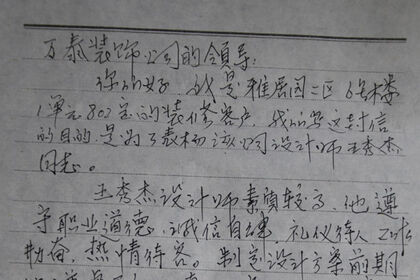 万泰装饰公司的领导:
你们好,我是雅居园二区6号楼
1单元802室的装修客户,我写这封信
的目的是为了表扬该公司设计师王秀杰
同志。
王秀杰设计师素质较高,他遵
守职业道德,诚信自律,礼仪待人,工作
勤奋,热情待客。制定设计方案前期